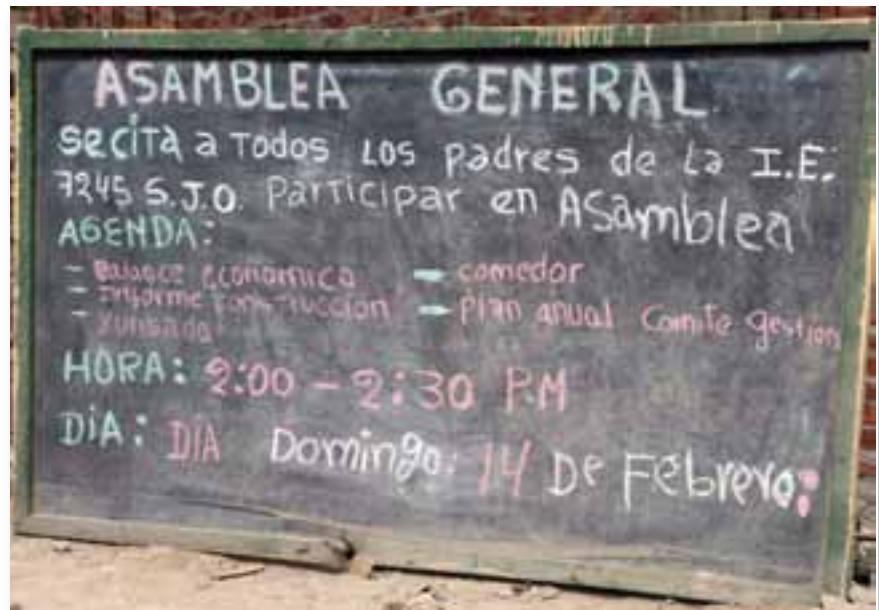 ASAMBLEA GENERAL
se cita a Todos Los padres de La I.E.
7245 S.J.O. Participar en Asamblea
AGENDA:
- Balance economica - comedor
- Informe construccion - Plan anual Comite gestion
- Yunsada
HORA: 2:00 - 2:30 P.M
DiA: DIA Domingo: 14 De Febrero: